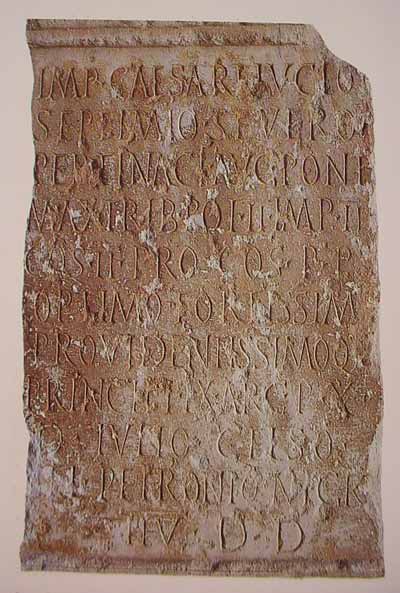 IMP·CAESARI LVCIO
SEPTIMIO·SEVERO
PERTINACI AVG PONT
MAX TRIB POT II IMP II
COS II PROCOS P P
OPTIMO FORTISSIM
PROVIDENTISSIMOQ
PRINCIPI EX ARG P X
IVLIO CELSO
PETRONIO NIGR
II V D D